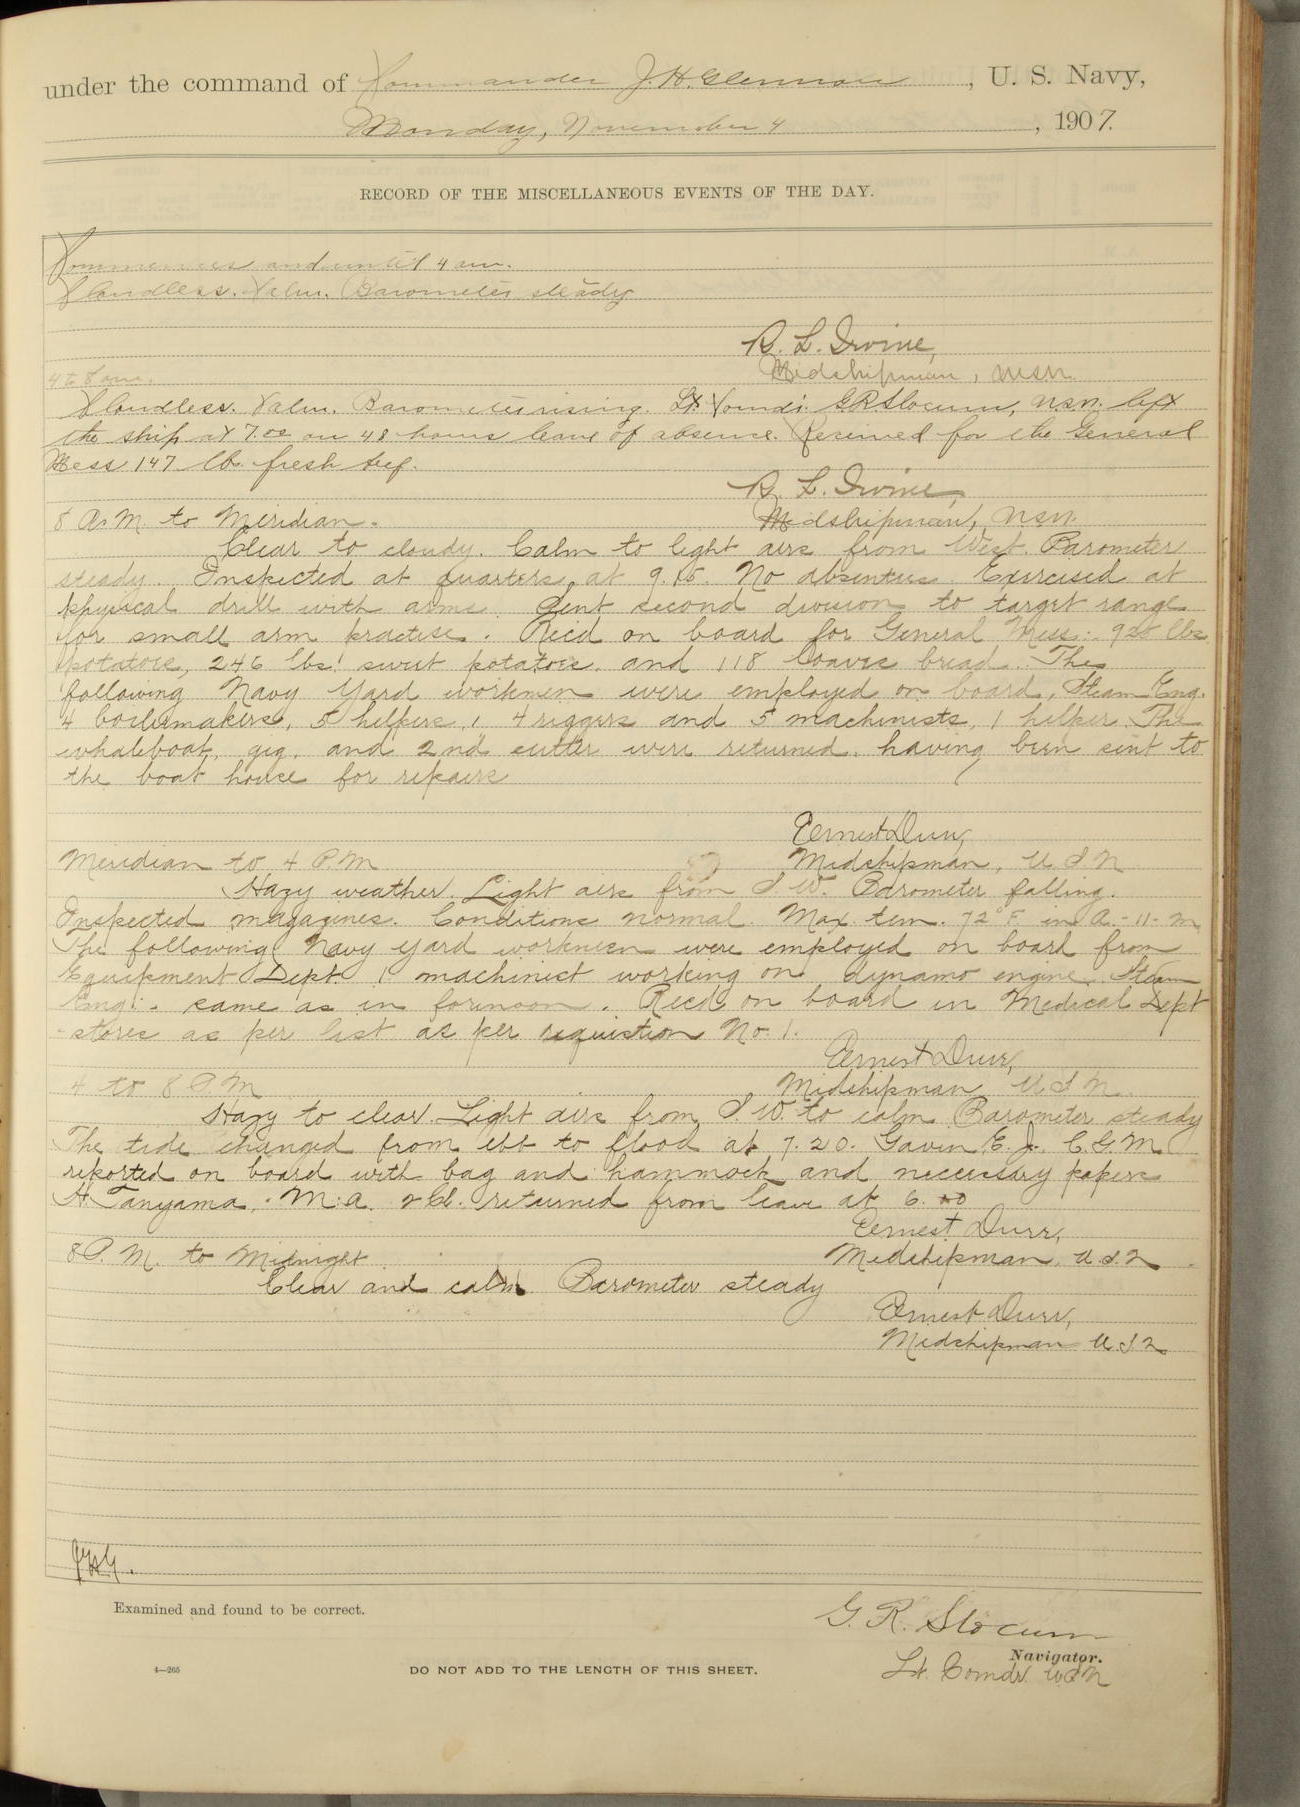 under the command of Commander J. H. Glennon, U. S. Navy,
Monday, November 4, 1907.
RECORD OF THE MISCELLANEOUS EVENTS OF THE DAY.
Commences and until 4 am.
Cloudless. Calm. Barometer steady
R. L. Irvine,
Midshipman, USN.
4 to 8 am.
Cloudless. Calm. Barometer rising. Lt Comdr. G R Slocum, USN. left
the ship at 7.00 on 48 hours leave of absence. Received for the General
Mess 147 lb. fresh beef.
R. L. Irvine,
Midshipman, USN.
8 A.M. to Meridian.
Clear to cloudy. Calm to light airs from West. Barometer
steady. Inspected at quarters at 9.15. No absentees. Exercised at
physical drill with arms. Sent second division to target range
for small arm practise. Rec'd on board for General Mess: 928 lbs
potatoes, 246 lbs. sweet potatoes, and 118 loaves bread. The
following Navy Yard workmen were employed on board, Steam Eng.
4 boilermakers, 5 helpers, 4 riggers and 5 machinists, 1 helper. The
whaleboat, gig, and 2nd cutter were returned, having been sent to
the boat house for repairs
Ernest Durr,
Midshipman, U S N
Meridian to 4 P.M
Hazy weather. Light airs from S.W. Barometer falling.
Inspected magazines. Conditions normal. Max. tem. 72° F. in A-11-M
The following Navy yard workmen were employed on board from
Equipment Dept. 1 machinist working on dynamo engine. Steam
Eng. - same as in forenoon. Rec'd on board in Medical Dept
- stores as per list as per requistion No. 1.
Ernest Durr,
Midshipman U S N.
4 to 8 P.M
Hazy to clear. Light airs from S.W. to calm. Barometer steady
The tide changed from ebb to flood at 7.20. Gavin E. J. C.G.M.
reported on board with bag and hammock and necessary papers
H. Tanyama, M.a. 2 Cl. returned from leave at 6.00
Ernest Durr,
Midshipman. U.S.N
8 P.M. to Midnight
Clear and calm. Barometer steady
Ernest Durr,
Midshipman U.S.N
JHG.
Examined and found to be correct.
G. R. Slocum
Navigator.
Lt. Comdr. USN
4—265
DO NOT ADD TO THE LENGTH OF THIS SHEET.